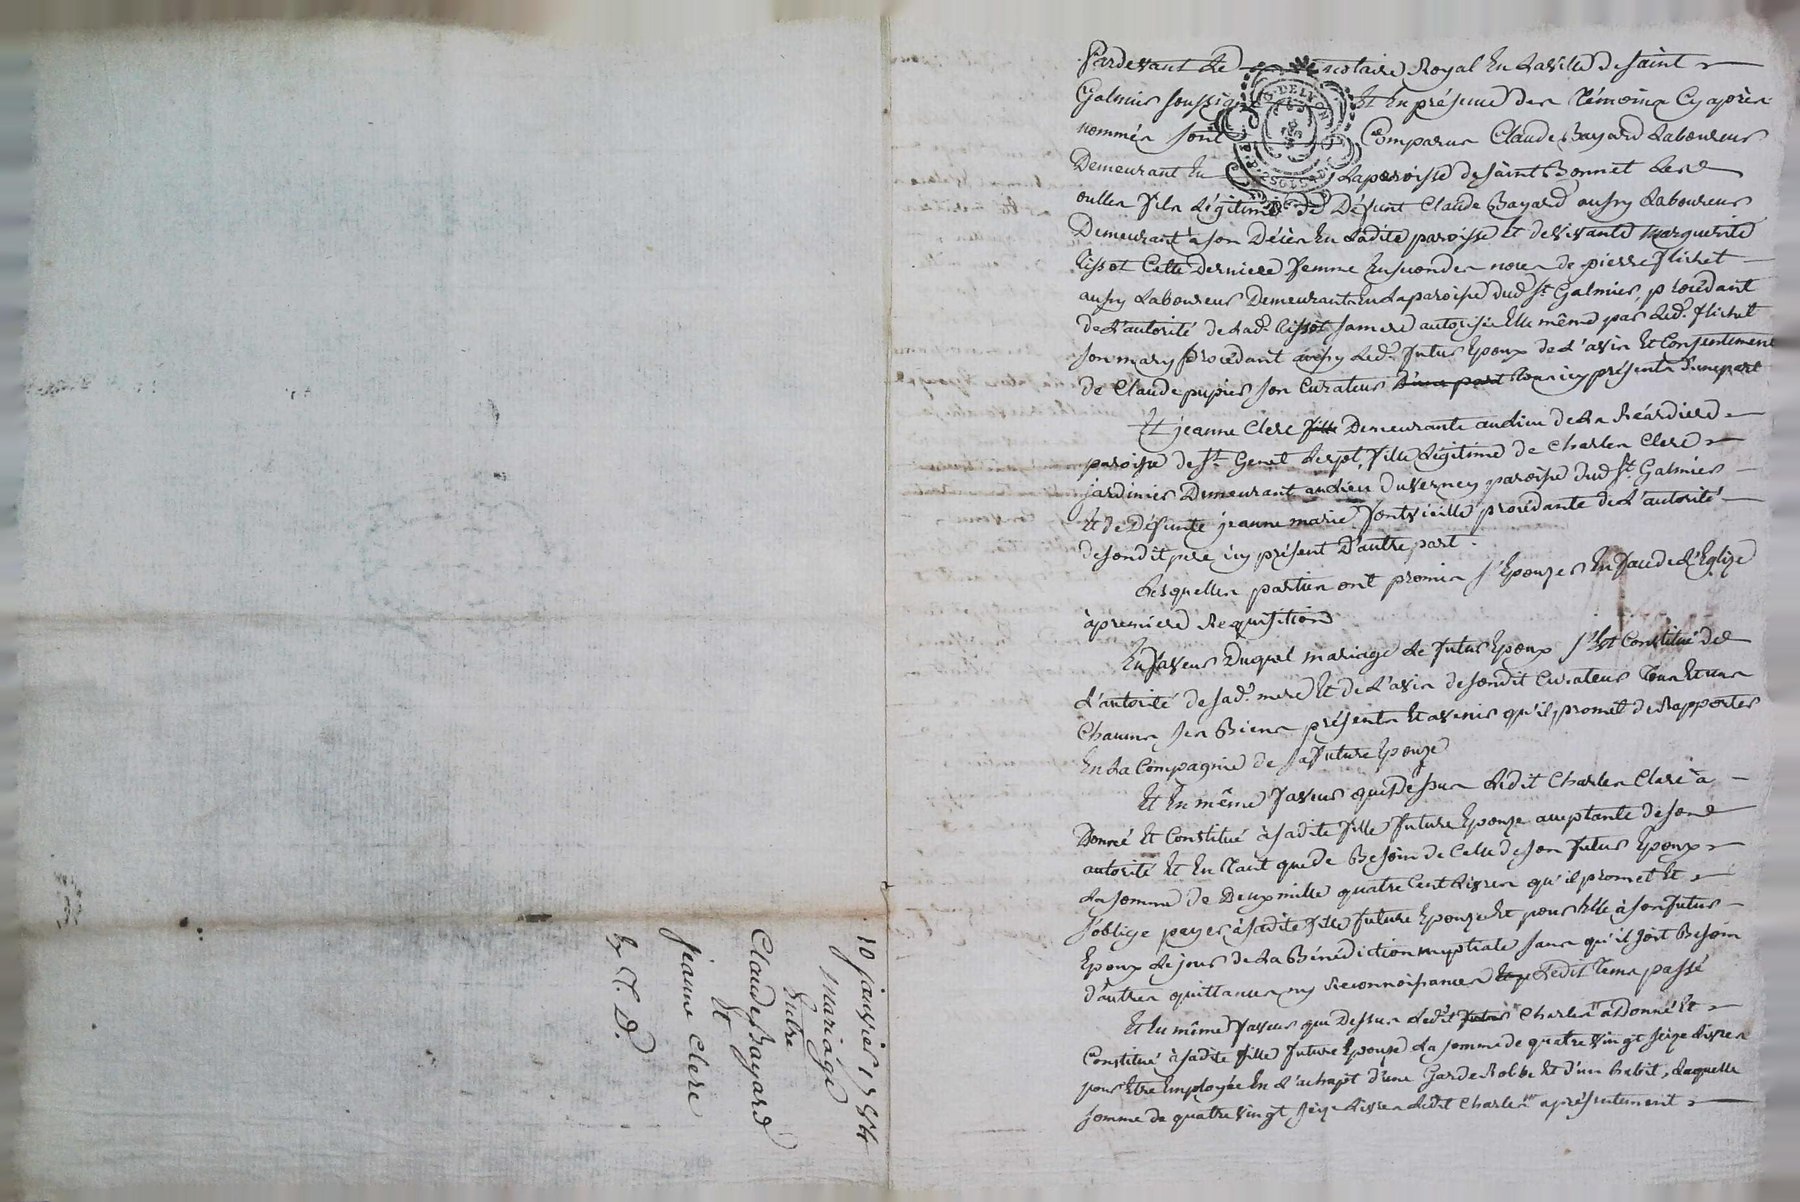 Pardevant Le notaire Royal En La ville de Saint
Galmier soussigné Et En présence des Témoins Cy après
nommés sont Comparus Claude Bayard Laboureur
Demeurant En Laparoisse de Saint Bonnet Les
oulles fils Légitime de Défunt Claude Bayard aussy Laboureur
Demeurant à son Décès En Ladite paroisse et de vivante Marguerite
Cissot Cette derniere femme En secondes noces de pierre flichet
aussy Laboureur Demeurants En Laparoisse dud. St. Galmier, procédant
de L'autorité de Lad. Cissot sa mere autorisée Elle même par Led. flichet
son mary procédant aussy Led. futur Epoux de L'avis Et Consentement
de Claude pupier son Curateur D'une part Tous icy présents D'une part
Et jeanne Clerc fille Demeurante au Lieu de La
paroisse de St. Genet Lerpt, fille Légitime de Charles Clerc
jardinier Demeurant au Lieu du Verney paroisse dud St. Galmier
Et de Défunte jeanne marie fontvieille procédante de L'autorité
de sondit pere icy présent D'autre part.
Lesquelles parties ont promis s'Epouzer En face de L'Eglize
à premiere Requisition
En faveur Duquel mariage Le futur Epoux s'Est Constitué de
L'autorité de sad. mere Et de L'avis de sondit Curateur Tous Et uns
Chacuns ses Biens présents Et avenir qu'il promet de Rapporter
En La Compagnie de sa future Epouze
Et En même faveur que Dessus Ledit Charles Clerc à
Donné Et Constitué à sadite fille future Epouze acceptante de son
autorité Et En Tant que de Besoin de Celle de son futur Epoux
La somme de Deux mille quatre Cent Livres qu'il promet Et
s'oblige payer à sadite fille future Epouze Et pour Elle à son futur
Epoux Le jour de La Bénédiction nuptiale sans qu'il soit Besoin
d'autres quittances ny Reconnoissances Ledit Tems passé
Et En même faveur que Dessus Ledit futur Charles a Donné Et
Constitué à sadite fille future Epouse La somme de quatre vingt seize Livres
pour Etre Employée En L'achapt d'une Garde Robbe Et d'un habit, Laquelle
somme de quatre vingt seize Livres Ledit Charles a présentement
10 janvier 1754
Mariage
Entre
Claude Bayard
Et
jeanne Clerc